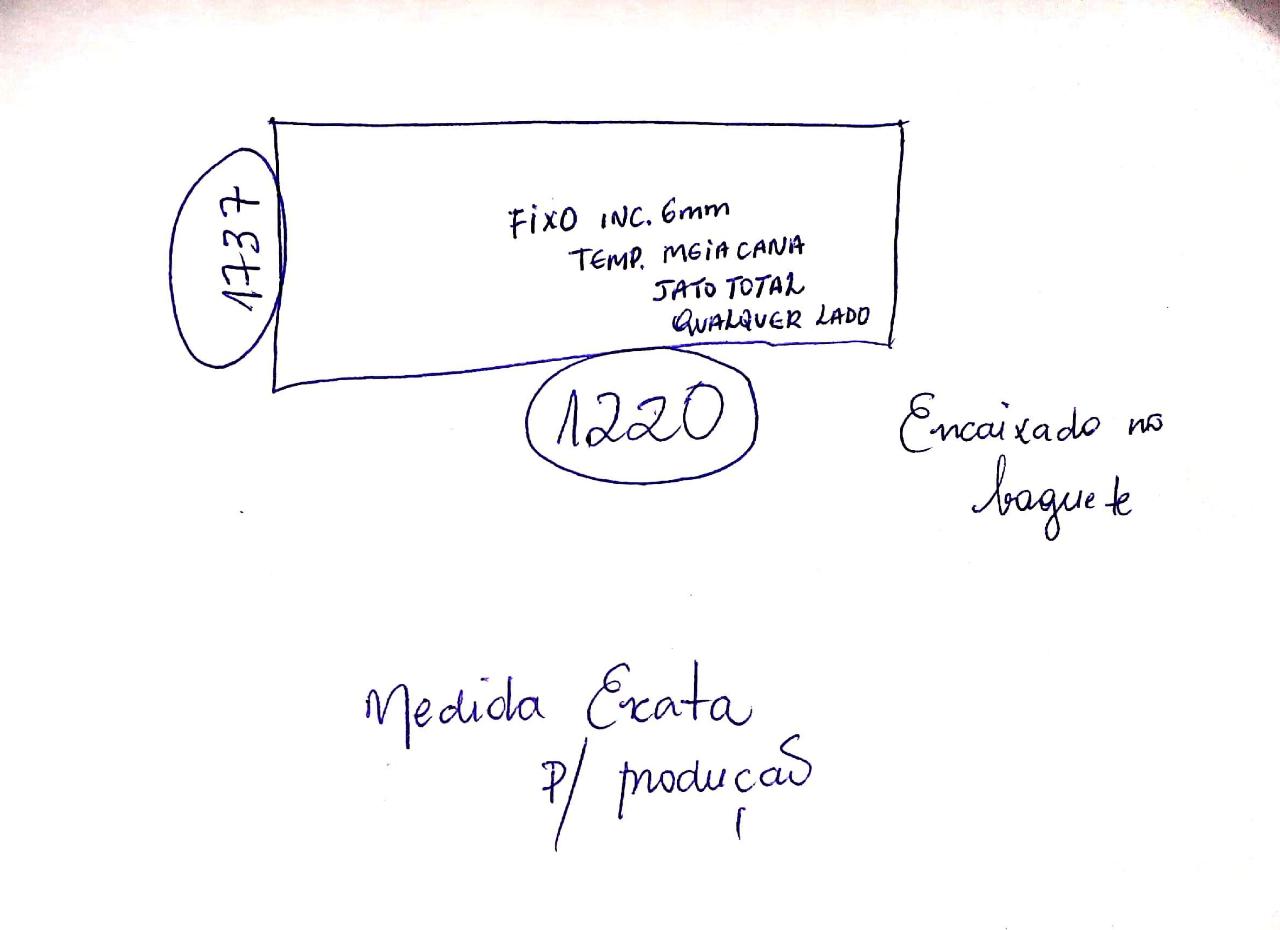 1737
FIXO INC. 6mm
TEMP. MEIA CANA
JATO TOTAL
QUALQUER LADO
1220
Encaixado no
baguete
Medida Exata
P/ produção